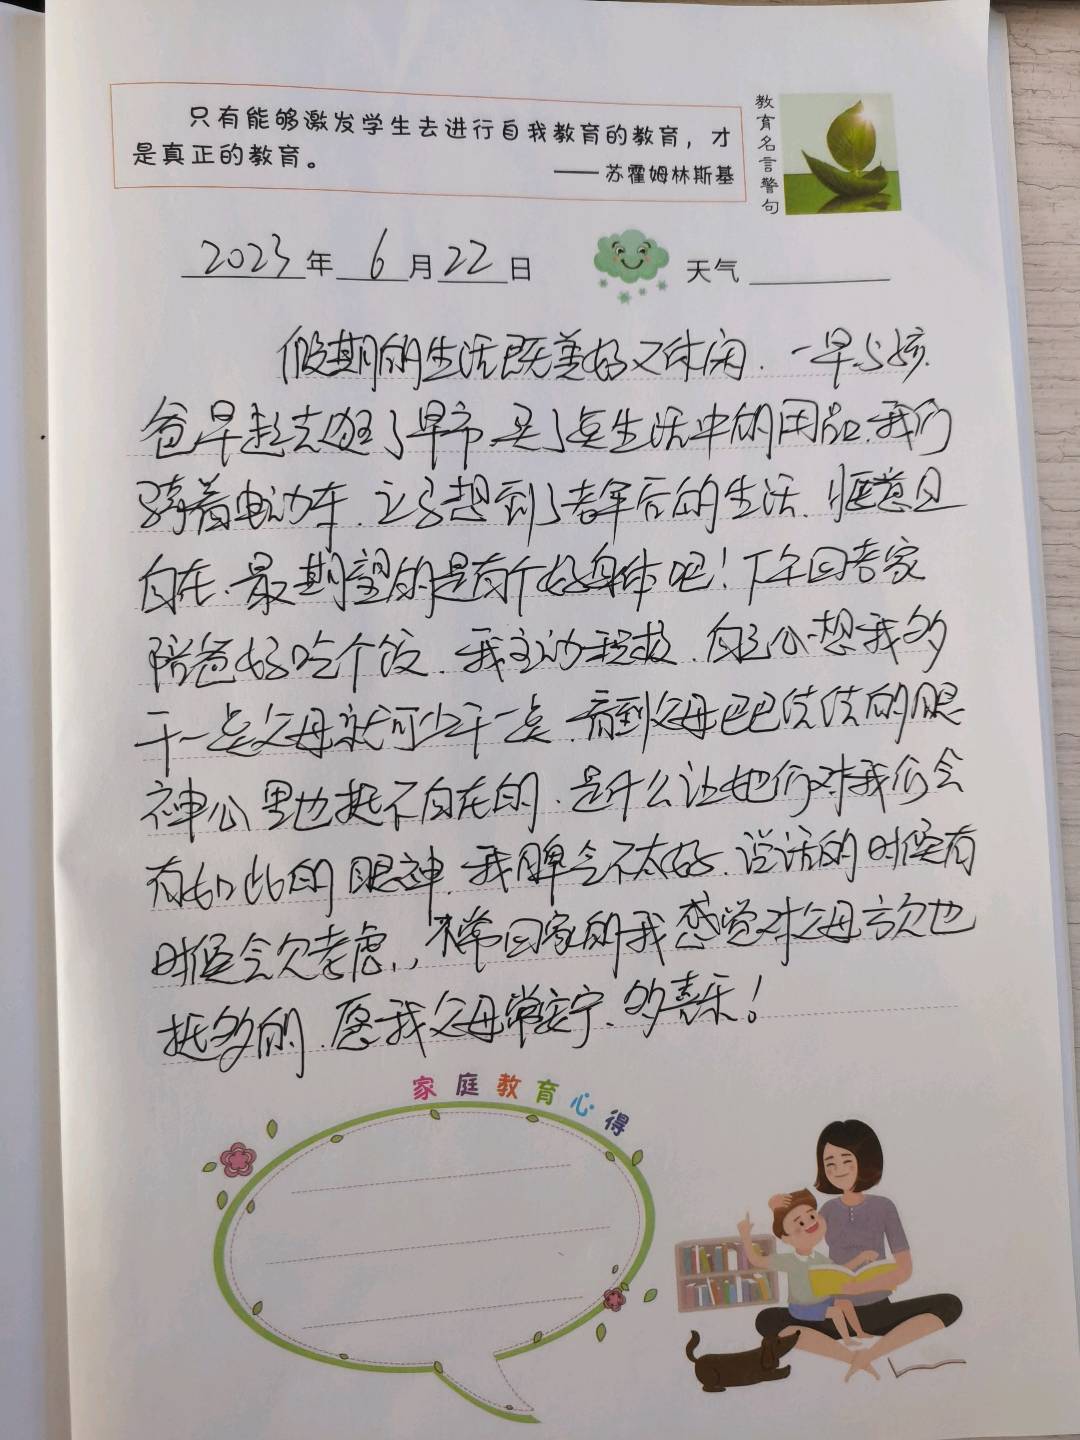 只有能够激发学生去进行自我教育的教育，才
是真正的教育。
——苏霍姆林斯基
教育名言警句
2023年6月22日
天气
假期的生活既美好又休闲、一早与孩
爸早起去逛了早市、买了点生活中的用品、我们
骑着电动车、让我想到了老年后的生活、惬意且
自在、最期望的是有个好身体吧！下午回老家
陪爸妈吃个饭、我主动
自己心想我多
干一点父母就可少干一点、看到父母巴巴结结的眼
神心里也挺不自在的、是什么让她们对我们会
有如此的眼神、我脾会不太好、说话的时候有
时候会欠考虑、、不常回家的我感觉对父母亏欠也
挺多的、愿我父母常安宁、多喜乐！
家庭教育心得